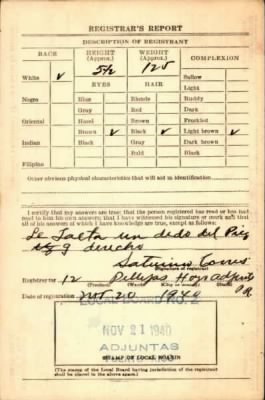 REGISTRAR'S REPORT
DESCRIPTION OF REGISTRANT
RACE HEIGHT (Approx.) WEIGHT (Approx.) COMPLEXION
White ✓ 5½ 125 Sallow
EYES HAIR Light
Negro Blue Blonde Ruddy
Gray Red Dark
Oriental Hazel Brown Freckled
Brown ✓ Black ✓ Light brown ✓
Indian Black Gray Dark brown
Bald Black
Filipino
Other obvious physical characteristics that will aid in identification
I certify that my answers are true; that the person registered has read or has had read to him his own answers; that I have witnessed his signature or mark and that all of his answers of which I have knowledge are true, except as follows:
Le Falta un dedo del Pie
derecho
Saturnino Torres
Signature of registrar
Registrar for 12
(Precinct) (Ward) (City or county) (State)
Date of registration Nov. 20 1940
LOCAL BOARD NO. 2
NOV 21 1940
ADJUNTAS
STAMP OF LOCAL BOARD
(The stamp of the Local Board having jurisdiction of the registrant shall be placed in the above space.)